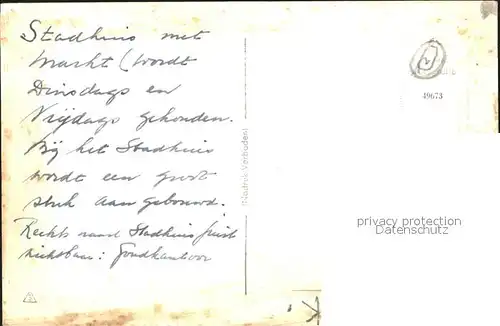 Stadhuis met
Markt (wordt
Dinsdags en
Vrijdags gehouden.
Bij het Stadhuis
wordt een groot
stuk aangebouwd.
Rechts naast Stadhuis juist
zichtbaar: Goudkantoor
(Nadruk Verboden)
49673
privacy protection
Datenschutz